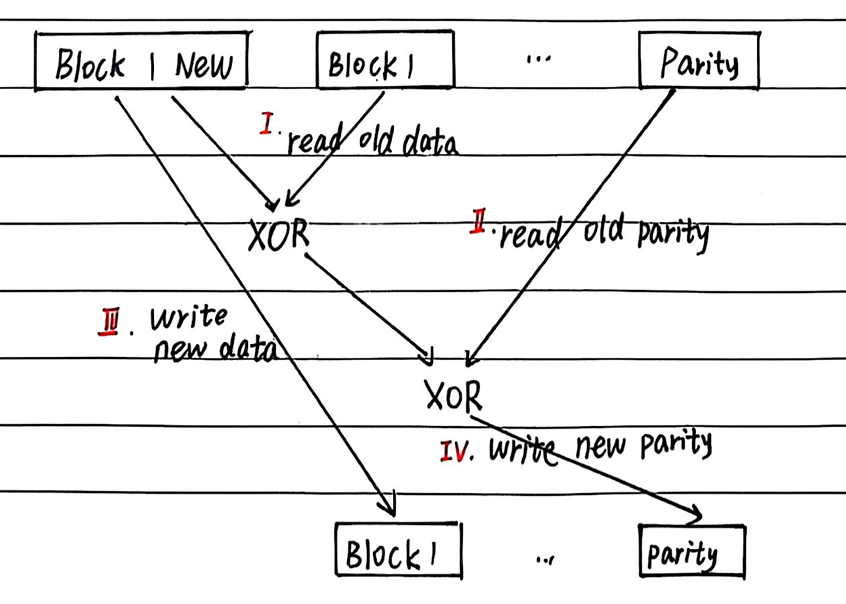 Block 1 New
Block 1
...
Parity
I. read old data
XOR
II. read old parity
III. write
new data
XOR
IV. write new parity
Block 1
...
parity